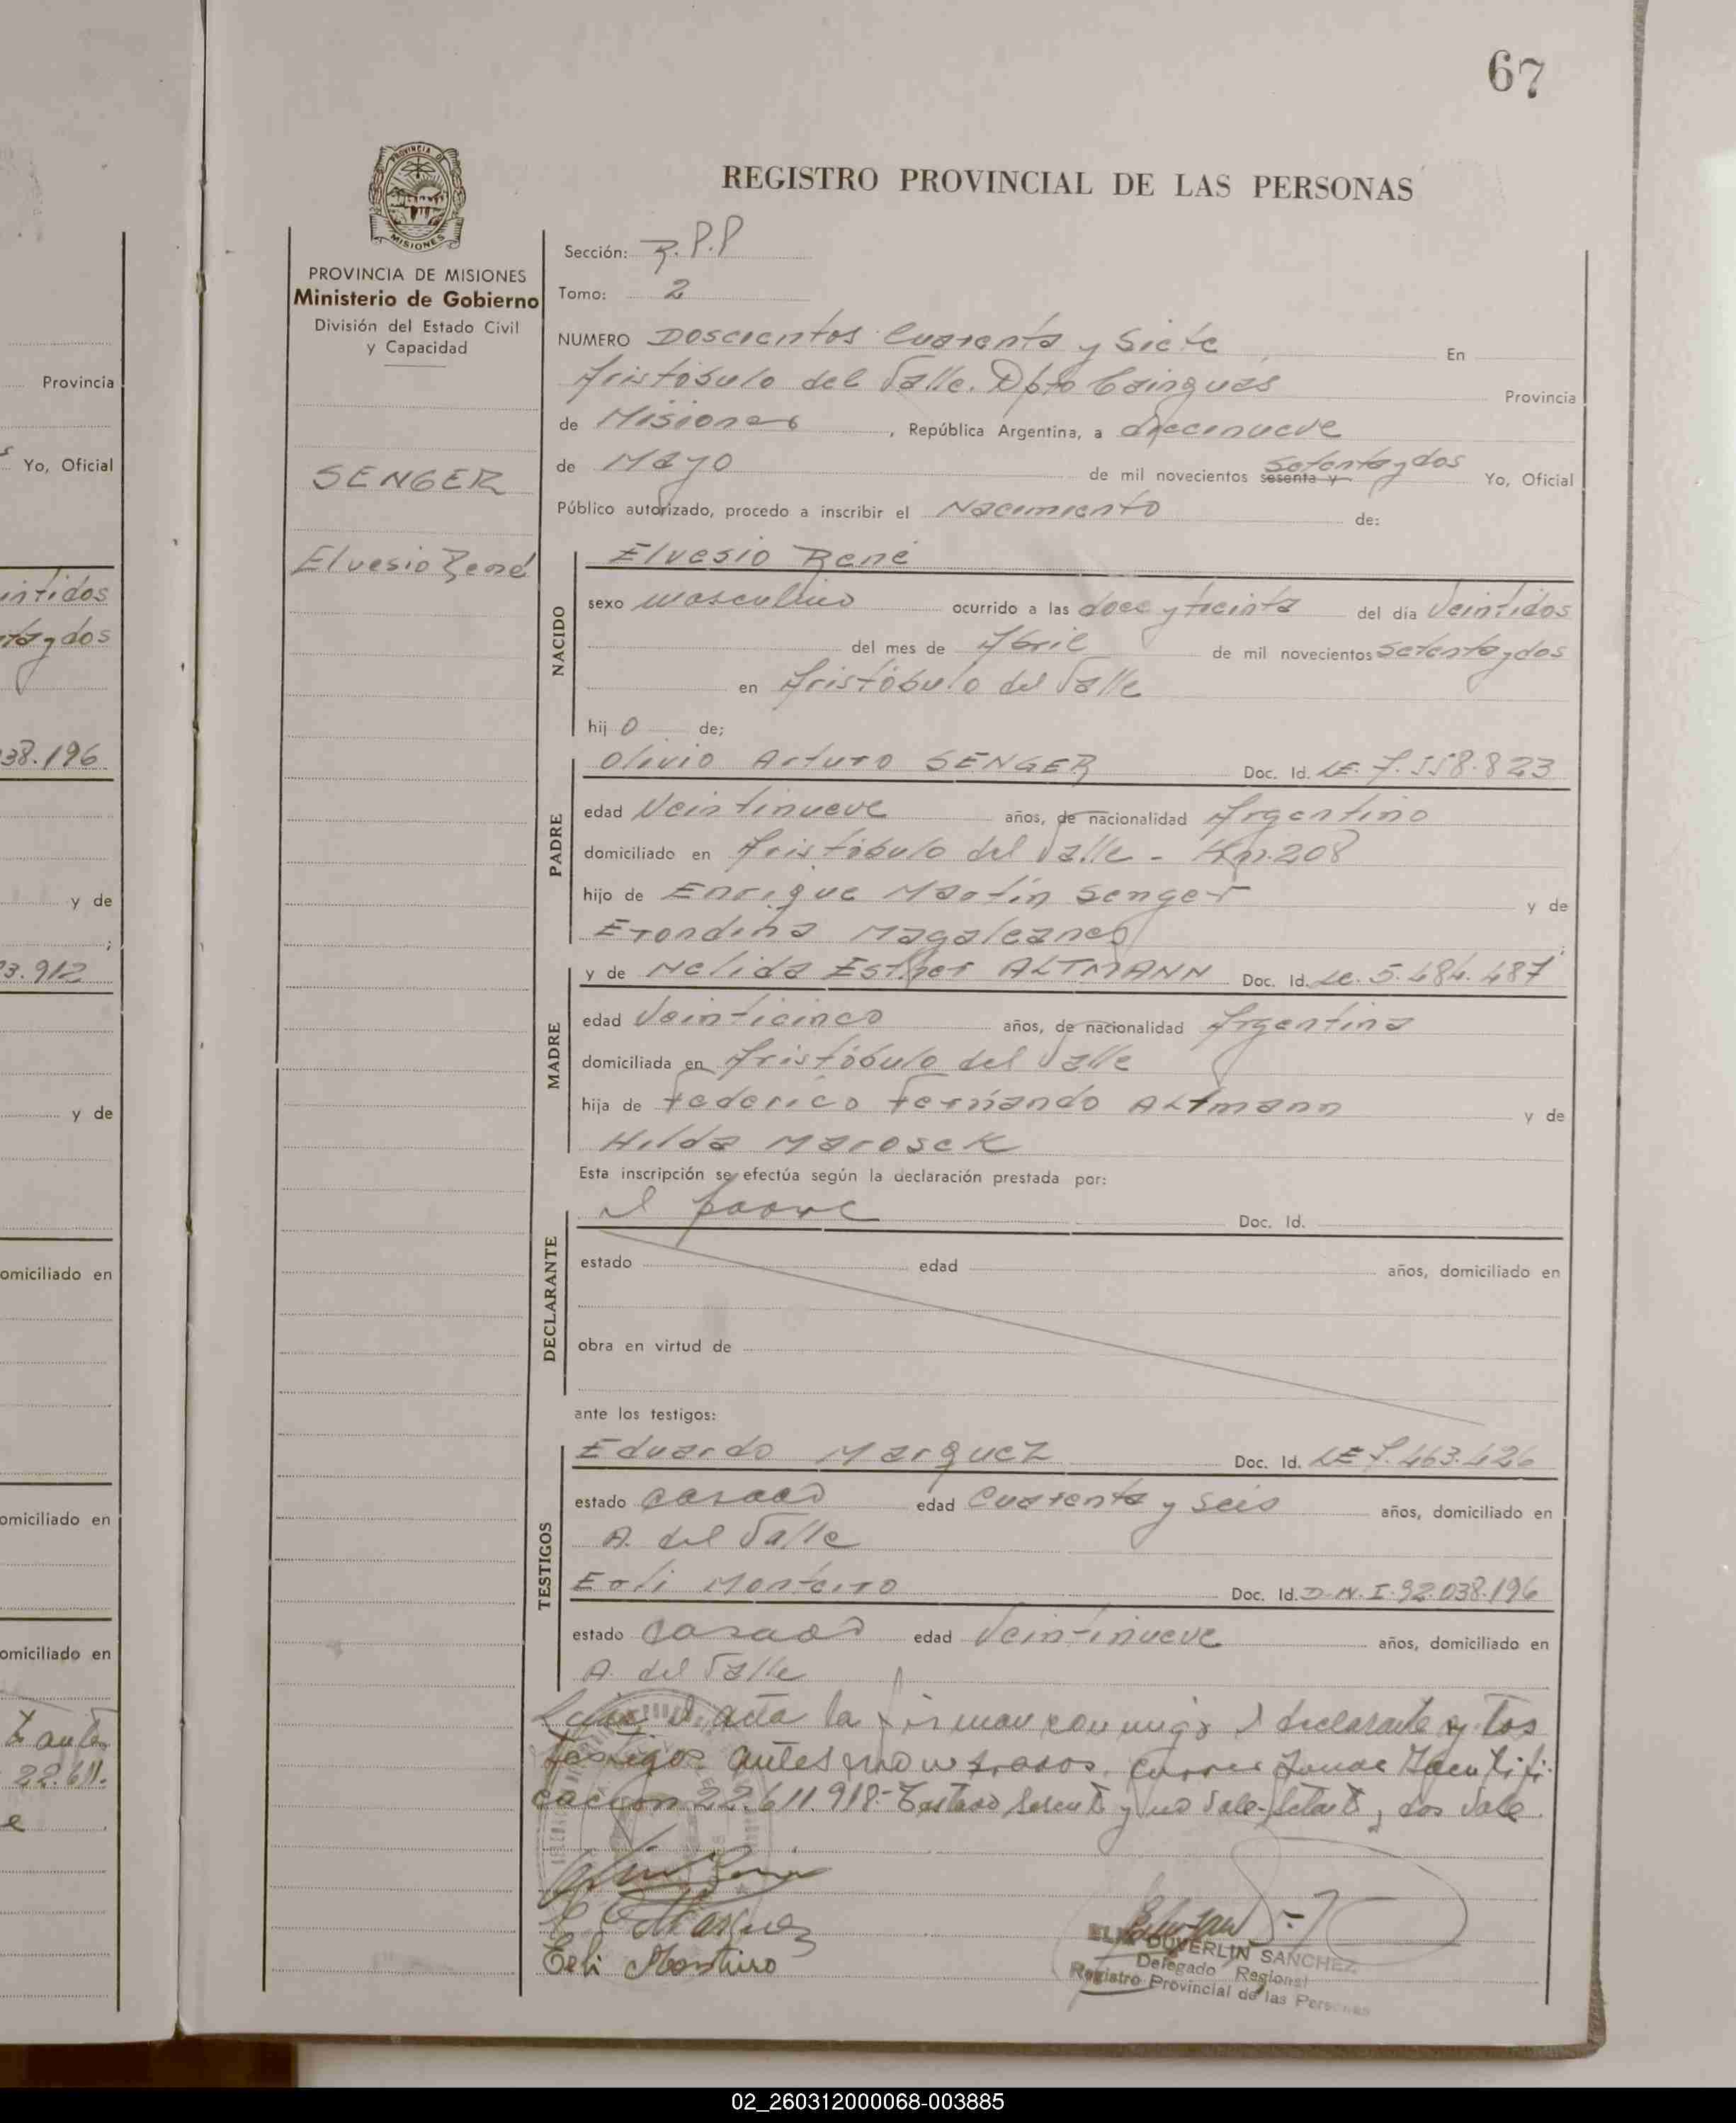 67
REGISTRO PROVINCIAL DE LAS PERSONAS
PROVINCIA DE MISIONES
Ministerio de Gobierno
División del Estado Civil
y Capacidad
SENGER
Elvesio René
Sección: R.P.P
Tomo: 2
NUMERO Doscientos Cuarenta y Siete En
Aristóbulo del Valle. Dpto Cainguas Provincia
de Misiones, República Argentina, a diecinueve
de Mayo de mil novecientos sesenta y setenta y dos Yo, Oficial
Público autorizado, procedo a inscribir el Nacimiento de:
NACIDO
Elvesio René
sexo masculino ocurrido a las doce y treinta del día Veintidos
del mes de Abril de mil novecientos setenta y dos
en Aristóbulo del Valle
hij o de;
PADRE
Olivio Arturo SENGER Doc. Id. LE. 7.558.823
edad Veintinueve años, de nacionalidad Argentino
domiciliado en Aristóbulo del Valle - Km.208
hijo de Enrique Martin Senger y de
Erondina Magaleanes
MADRE
y de Nelida Esther ALTMANN Doc. Id. Lc. 5.484.487
edad Veinticinco años, de nacionalidad Argentina
domiciliada en Aristóbulo del Valle
hija de Federico Fernando Altmann y de
Hilda Marosek
Esta inscripción se efectúa según la declaración prestada por:
DECLARANTE
el padre Doc. Id.
estado edad años, domiciliado en
obra en virtud de
ante los testigos:
TESTIGOS
Eduardo Marquez Doc. Id. LE 7.463.426
estado casado edad Cuarenta y seis años, domiciliado en
A. del Valle
Erli Monteiro Doc. Id. D.N.I. 92.038.196
estado casado edad Veintinueve años, domiciliado en
A. del Valle
Leida el acta la firman conmigo el declarante y los
testigos antes nombrados.
22.611.918.- Testado sesenta y no vale - setenta y dos vale
Erli Monteiro
DUVERLIN SANCHEZ
Delegado Regional
Registro Provincial de las Personas
Provincia
Yo, Oficial
intidos
ta y dos
38.196
y de
3.912
y de
omiciliado en
omiciliado en
omiciliado en
22.611.
02_260312000068-003885